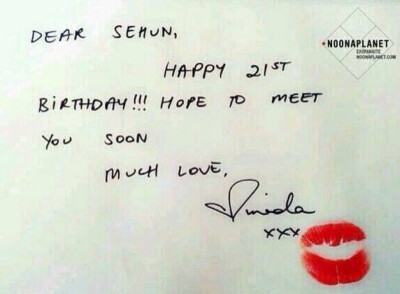 DEAR SEHUN,
HAPPY 21ST
BIRTHDAY!!! HOPE TO MEET
YOU SOON
MUCH LOVE,
xxx
NOONAPLANET
EXOFANSITE
NOONAPLANET.COM